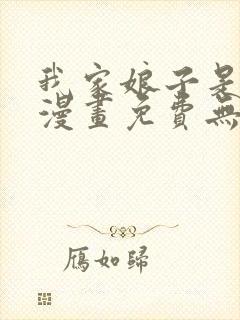 我家娘子是
漫畫免費無
雁如歸